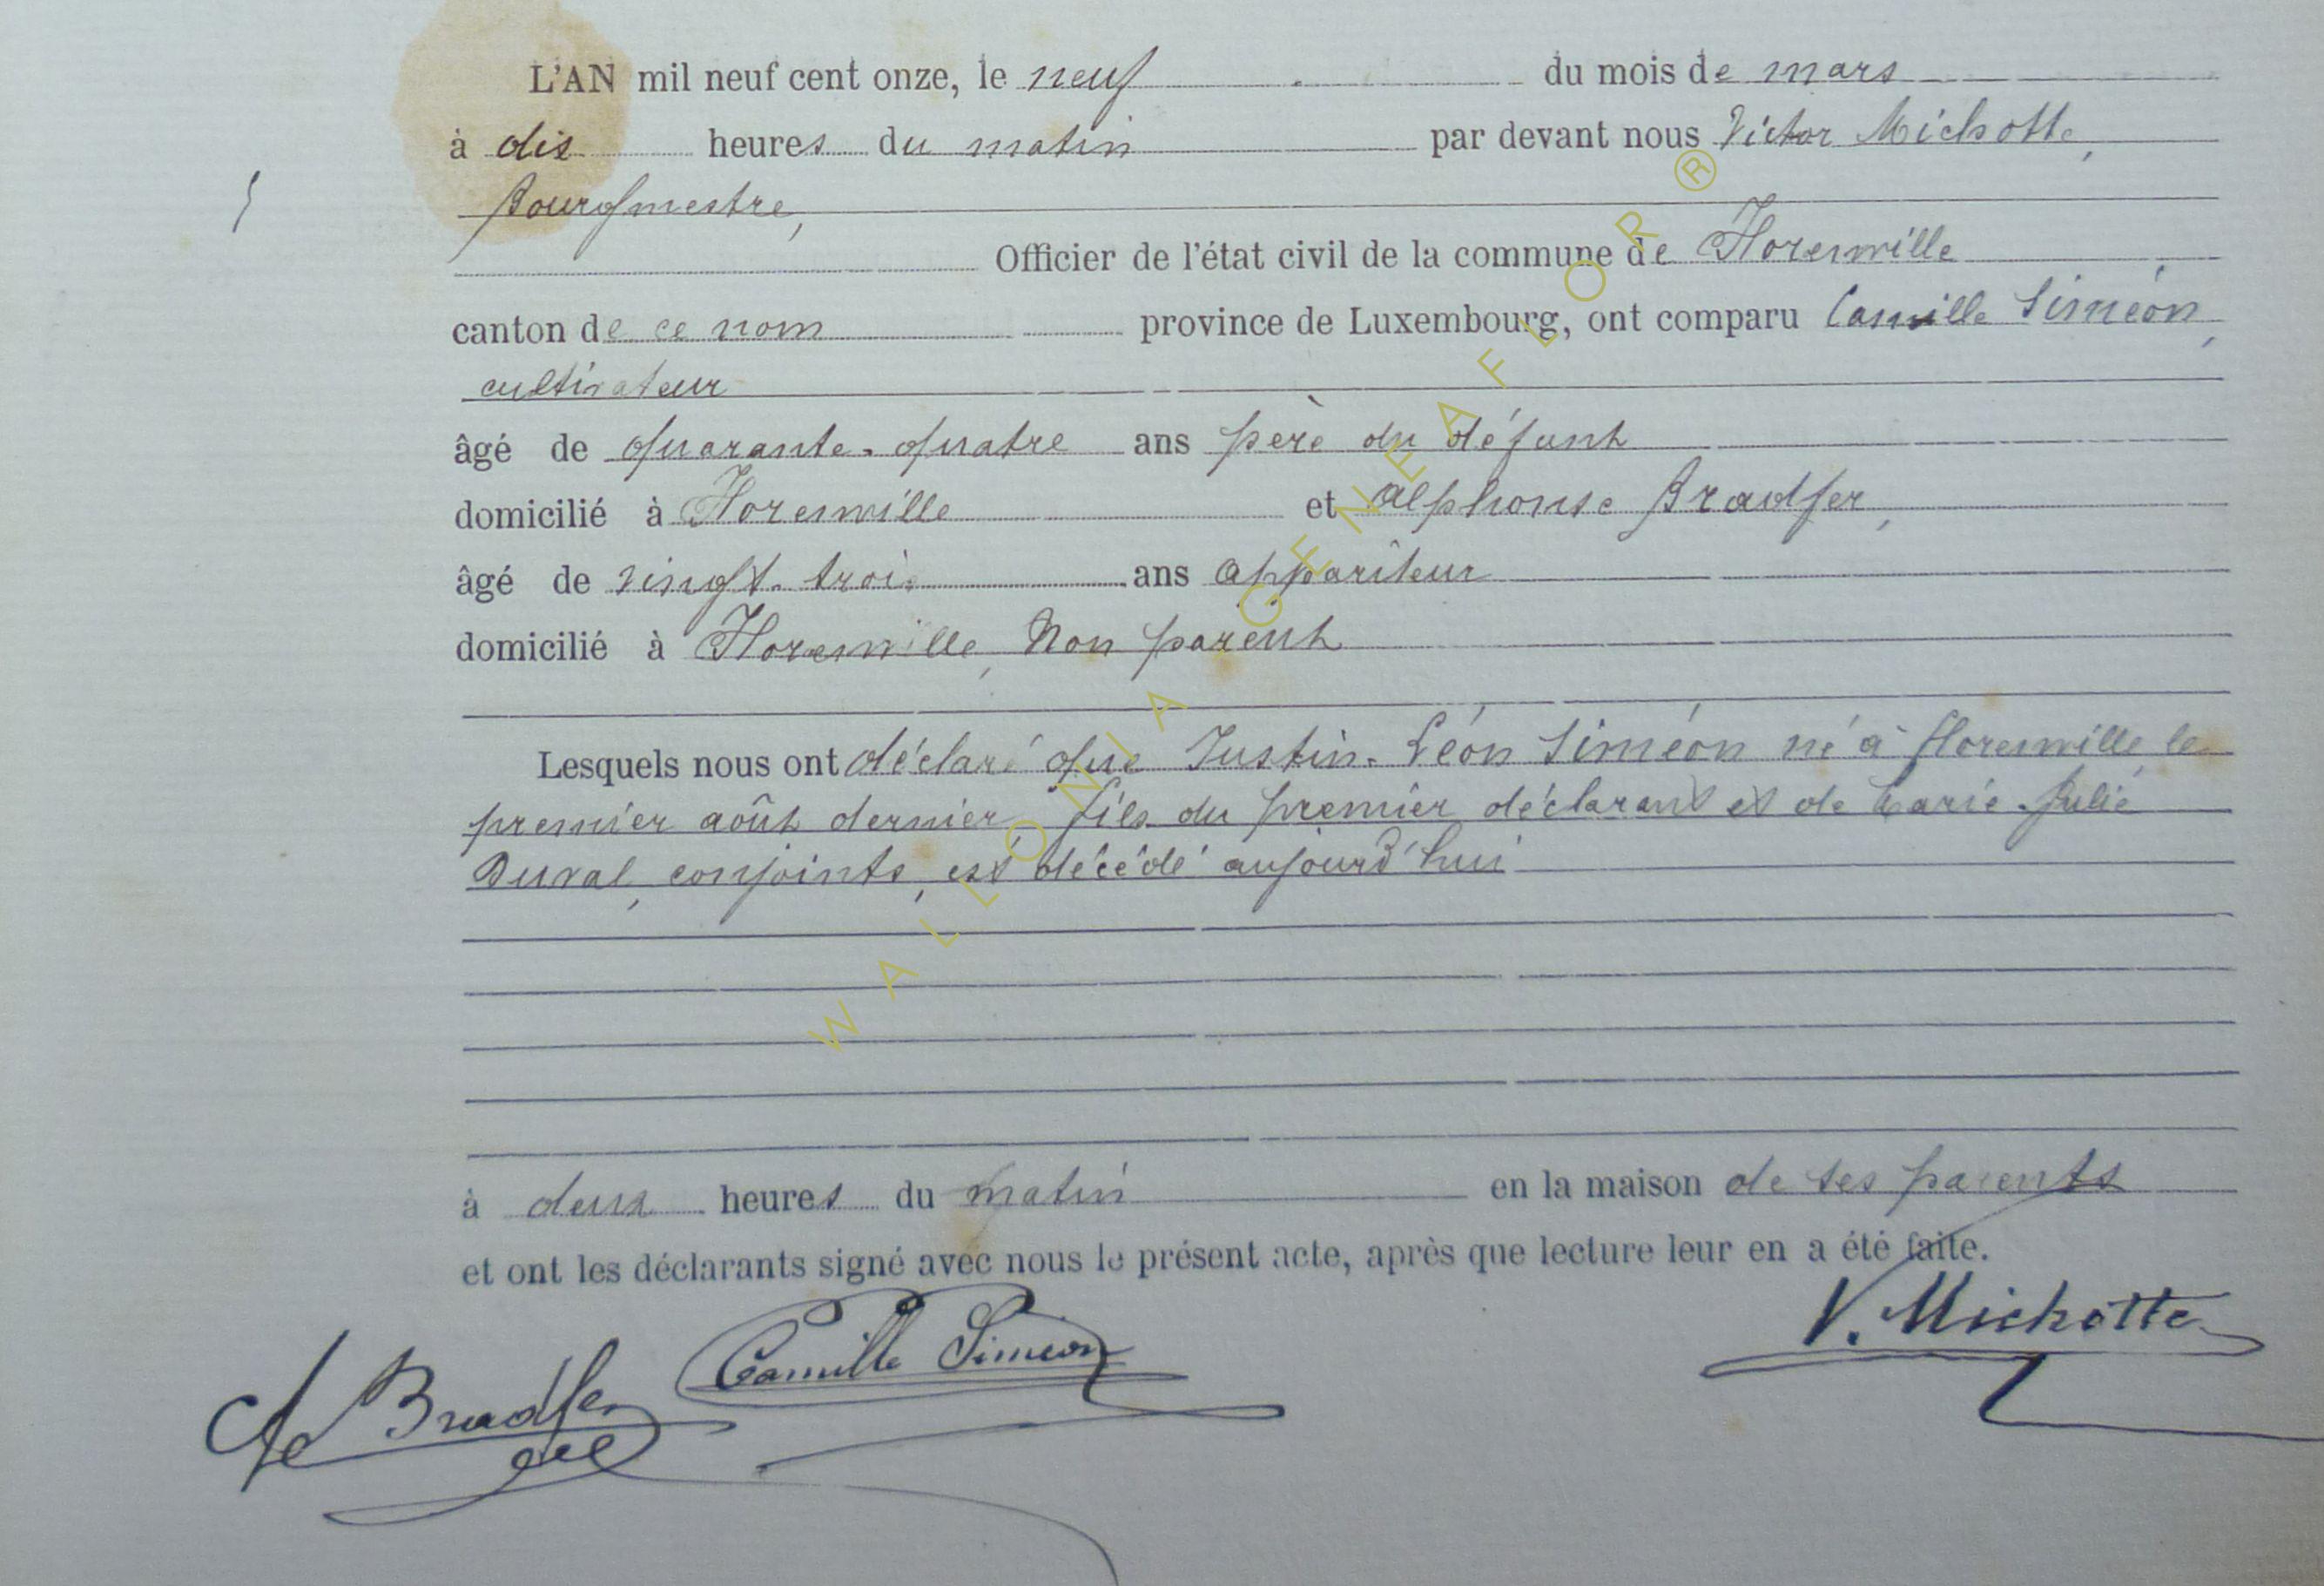 L'AN mil neuf cent onze, le neuf du mois de mars
à dix heures du matin par devant nous Victor Michotte,
Bourgmestre,
Officier de l'état civil de la commune de Florenville
canton de ce nom province de Luxembourg, ont comparu Camille Siméon,
cultivateur
âgé de quarante-quatre ans père du défunt
domicilié à Florenville et Alphonse Bradfer,
âgé de vingt-trois ans appariteur
domicilié à Florenville, Non parent
Lesquels nous ont déclaré que Justin-Léon Siméon né à Florenville le
premier août dernier, fils du premier déclarant et de Marie-Julie
Duval, conjoints, est décédé aujourd'hui
à deux heures du matin en la maison de ses parents
et ont les déclarants signé avec nous le présent acte, après que lecture leur en a été faite.
V. Michotte
Camille Siméon
Bradfer
WALLONIA GENEAFLOR ®